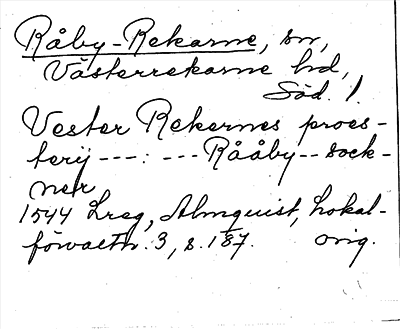 Råby-Rekarne, sn,
Västerrekarne hd,
Söd. 1.
Vester Rekernes proes-
terij ---: --- Rååby -- sock-
ner
1544 Lreg, Almquist, Lokal-
förvaltn. 3, s. 187. orig.